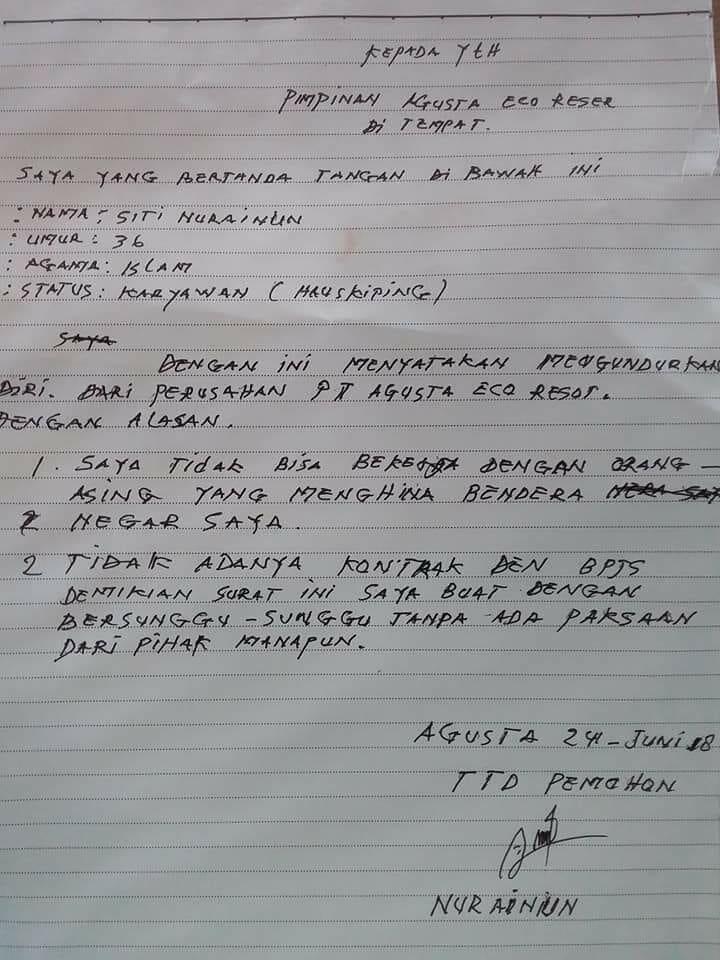 KEPADA YtH
PIMPINAN AGUSTA ECO RESER
Di TEMPAT.
SAYA YANG BERTANDA TANGAN Di BAWAH INI
: NAMA : SITI NURAINUN
: UMUR : 36
: AGAMA : ISLAM
: STATUS : KARYAWAN ( HAUSKIPING )
SAYA
DENGAN INI MENYATAKAN MENGUNDURKAN
DIRI. DARI PERUSAHAN PT AGUSTA ECO RESOT.
DENGAN ALASAN.
1. SAYA TIDAK BISA DENGAN ORANG -
ASING YANG MENGHINA BENDERA
2 NEGAR SAYA.
2 TIDAK ADANYA KONTRAK DEN BPJS
DEMIKIAN SURAT INI SAYA BUAT DENGAN
BERSUNGGU - SUNGGU TANPA ADA PAKSAAN
DARI PIHAK MANAPUN.
AGUSTA 24 - JUNI 18
TTD PEMOHON
NURAINUN